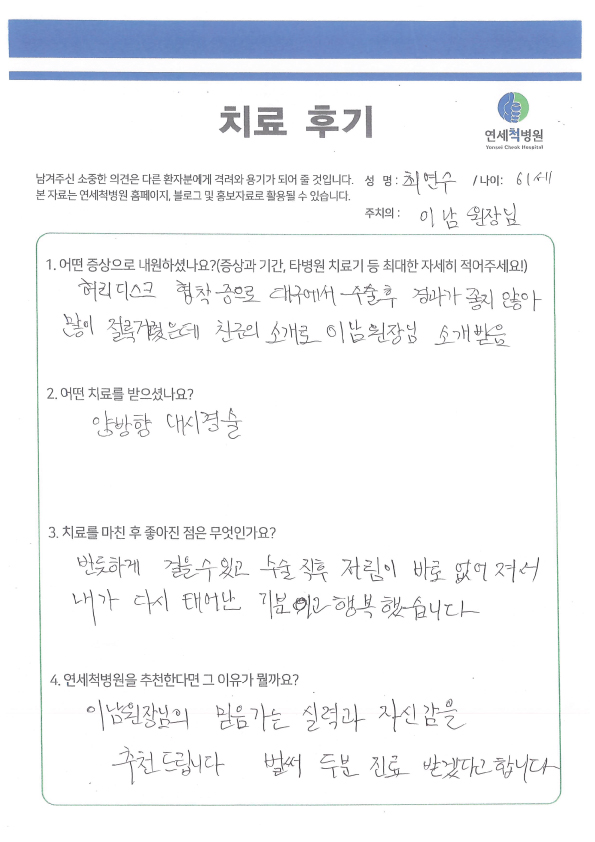 치료 후기
연세척병원
Yonsei Cheok Hospital
남겨주신 소중한 의견은 다른 환자분에게 격려와 용기가 되어 줄 것입니다.
본 자료는 연세척병원 홈페이지, 블로그 및 홍보자료로 활용될 수 있습니다.
성 명: 최연수 /나이: 61세
주치의: 이남 원장님
1. 어떤 증상으로 내원하셨나요?(증상과 기간, 타병원 치료기 등 최대한 자세히 적어주세요!)
허리디스크 협착증으로 대구에서 수술후 경과가 좋지 않아
많이 절룩거렸은데 친구의 소개로 이남원장님 소개받음
2. 어떤 치료를 받으셨나요?
양방향 내시경술
3. 치료를 마친 후 좋아진 점은 무엇인가요?
반듯하게 걸을수있고 수술직후 저림이 바로 없어져서
내가 다시 태어난 기분이고 행복했습니다
4. 연세척병원을 추천한다면 그 이유가 뭘까요?
이남원장님의 믿음가는 실력과 자신감을
추천드립니다 벌써 두분 진료 받겠다고합니다